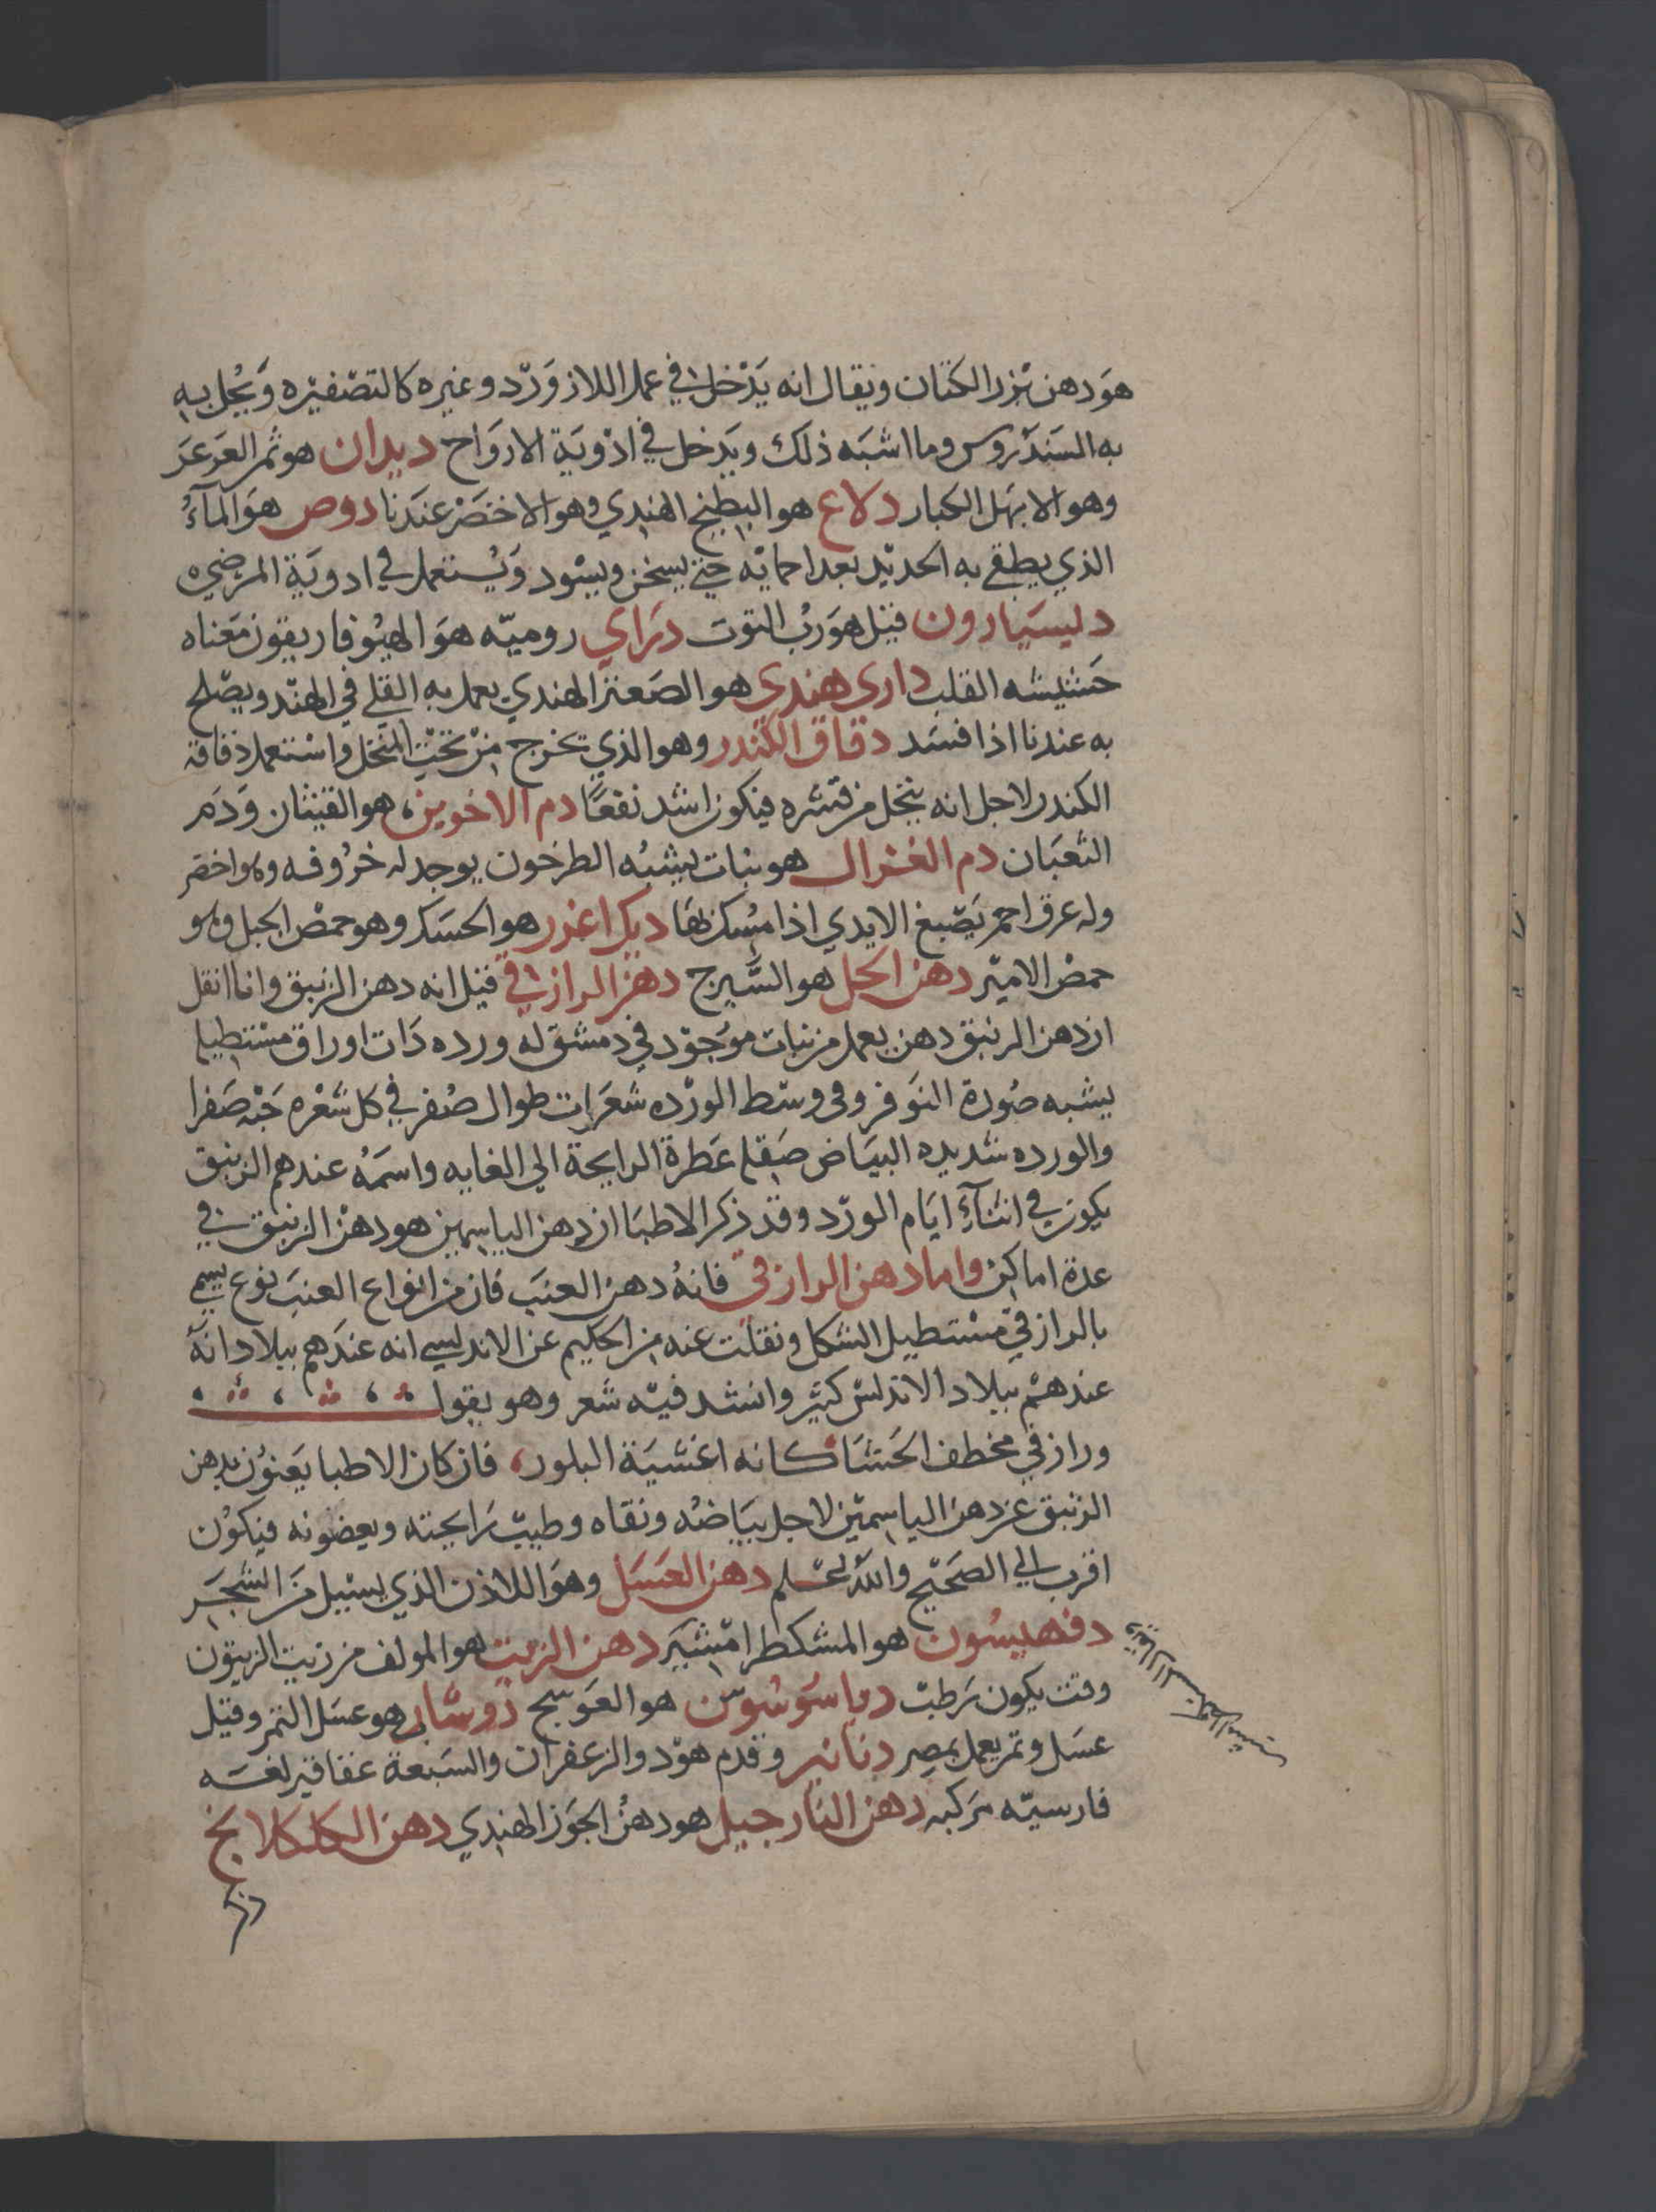 هو دهن بزر الكتان ويقال انه يدخل في عمل اللازورد وغيره كالتصفيره ويحل به
به السندروس وما اشبه ذلك ويدخل في ادوية الارواح ديدان هو ثمر العرعر
وهو الابهل الكبار دلاع هو البطيخ الهندي وهو الاخضر عندنا دوص هو المآء
الذي يطفي به الحديد بعد احمايه حتي يسخن ويسود ويستعمل في ادوية المرضي
دليسيارون قيل هو رب التوت دراي روميه هو الهيوفاريقون معناه
حشيشه القلب داري هندي هو الصعتر الهندي يعمل به القلي في الهند ويصلح
به عندنا اذا فسد دقاق الكندر وهو الذي يخرج من تحت المنخل واستعمل دقاقه
الكندر لاجل انه ينخل من قشره فيكون اشد نفعا دم الاخوين هو القيثان ودم
الثعبان دم الغزال هو نبات يشبه الطرخون يوجد له خروفه وهو اخضر
وله عرق احمر يصبغ الايدي اذا مسك بها ديك اعزر هو الحسك وهو حمص الجبل وهو
حمص الامير دهن الحل هو السيرج دهن الرازقي قيل انه دهن الزنبق وانا انقل
ان دهن الزنبق دهن يعمل من نبات موجود في دمشق له ورده ذات اوراق مستطيله
يشبه صورة النوفر وفي وسط الورده شعرات طوال صفر في كل شعره حبه صفرا
والورده شديده البياض صقله عطرة الرايحة الي الغايه واسمه عندهم الزنبق
يكون في اثنآء ايام الورد وقد ذكر الاطبا ان دهن الياسمين هو دهن الزنبق في
عدة اماكن واما دهن الرازقي فانه دهن العنب فان من انواع العنب نوع يسمي
بالرازقي مستطيل الشكل ونقلت عنه من الحكيم عن الاندلسي انه عندهم ببلاد انه
عندهم ببلاد الاندلس كثير وانشد فيه شعر وهو يقول
ورازقي مخطف الحشا كانه اغشية البلور، فان كان الاطبا يعنون بدهن
الزنبق عن دهن الياسمين لاجل بياضه ونقاه وطيب رايحته ويعضونه فيكون
اقرب الي الصحيح والله اعلم دهن العسل وهو اللاذن الذي يسيل من الشجر
دفهيسون هو المشكطرامشير دهن الزيت هو المولف من زيت الزيتون
وقت يكون رطب دباسوسوس هو العوسج دوشاب هو عسل التمر وقيل
عسل وتمر يعمل بمصر دنانير وقدم هود والزعفران والسبعة عقاقير لغه
فارسيه مركبه دهن النارجيل هو دهن الجوز الهندي دهن الكلكلانج